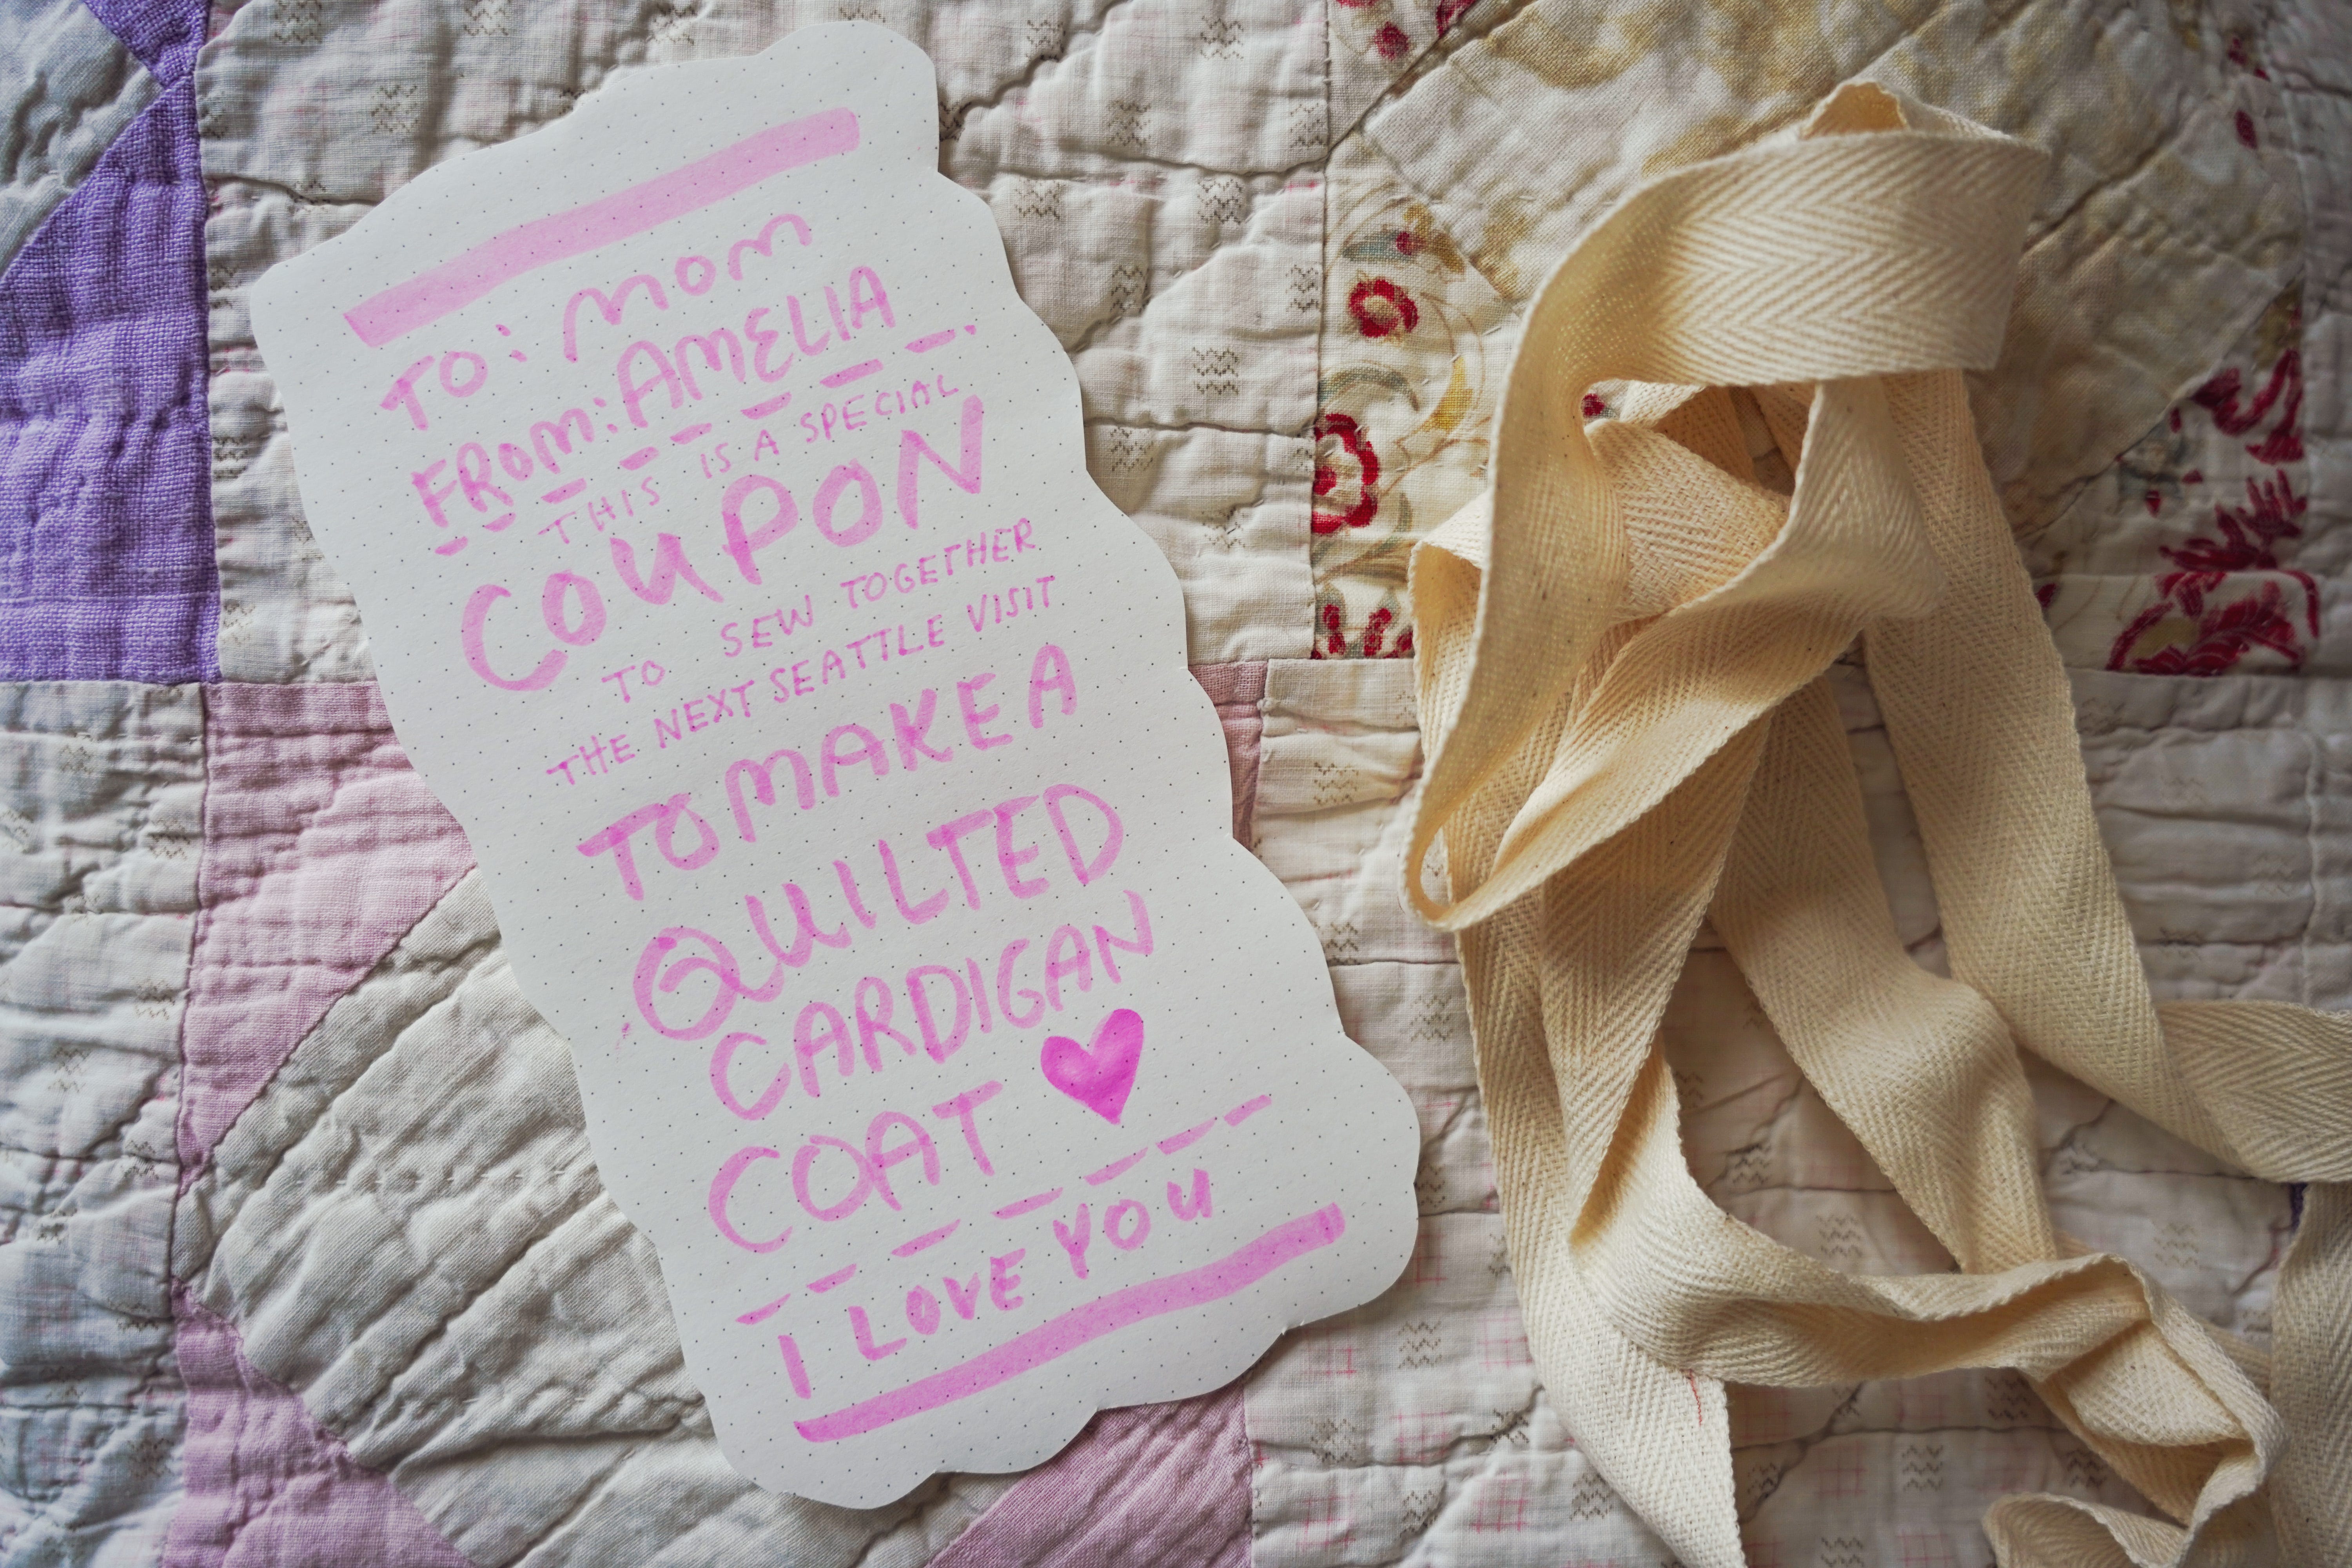 TO: MOM
FROM: AMELIA
THIS IS A SPECIAL
COUPON
TO SEW TOGETHER
THE NEXT SEATTLE VISIT
TO MAKE A
QUILTED
CARDIGAN
COAT
I LOVE YOU